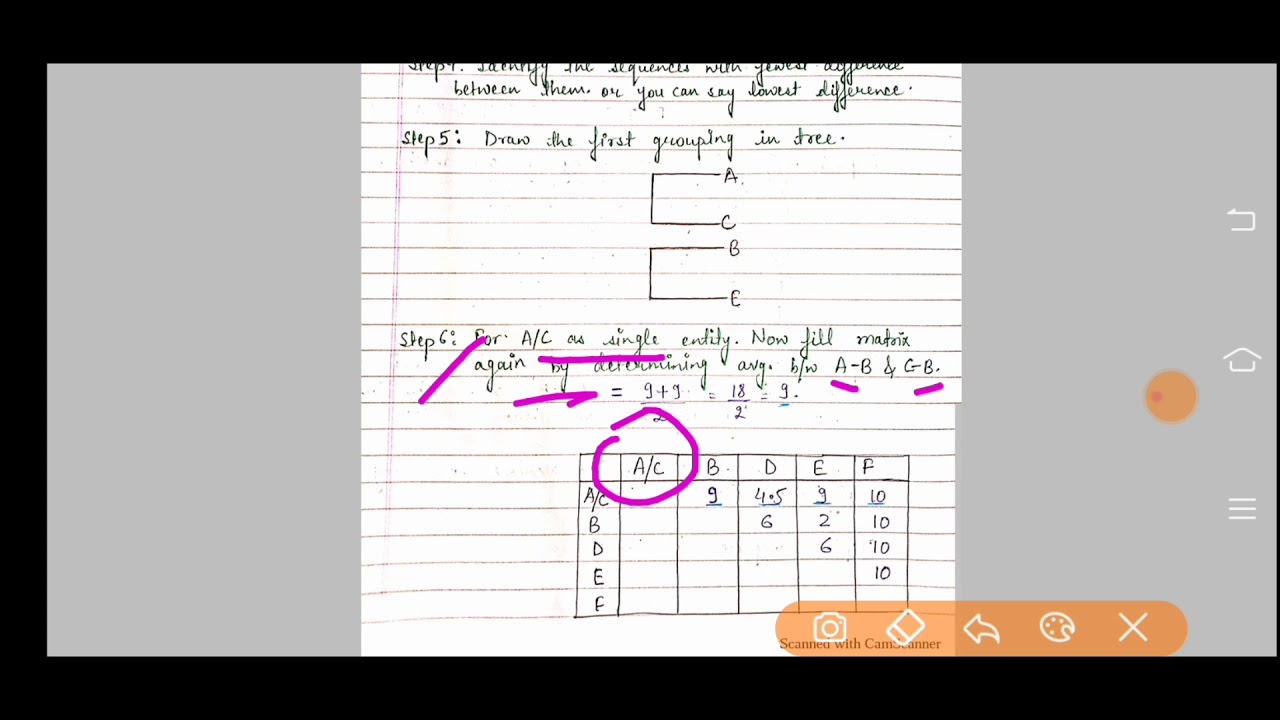 Step4: Identify the sequences with fewest difference
between them. or you can say lowest difference.
Step5: Draw the first grouping in tree.
A
C
B
E
Step6: For A/C as single entity. Now fill matrix
again by determining avg. b/w A-B & C-B.
= 9+9/2 = 18/2 = 9.
A/C B D E F
A/C 9 4.5 9 10
B 6 2 10
D 6 10
E 10
F
Scanned with CamScanner